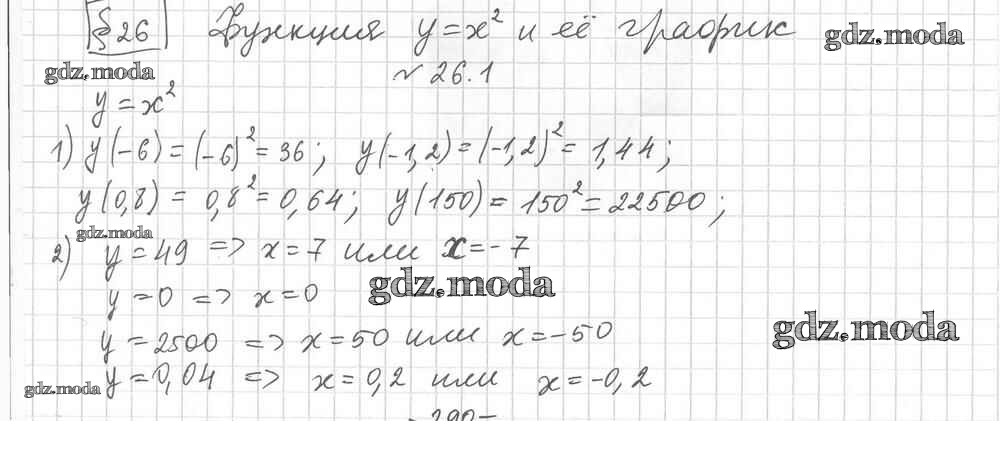 § 26 Функция y = x² и её график gdz.moda
gdz.moda № 26.1
y = x²
1) y(-6) = (-6)² = 36; y(-1,2) = (-1,2)² = 1,44;
y(0,8) = 0,8² = 0,64; y(150) = 150² = 22500;
gdz.moda
2) y = 49 => x = 7 или x = -7
y = 0 => x = 0 gdz.moda
y = 2500 => x = 50 или x = -50 gdz.moda
gdz.moda y = 0,04 => x = 0,2 или x = -0,2